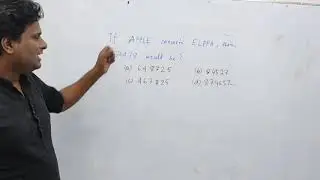 If APPLE means ELPPA, then
would be?
(a) 648725 (b) 84527
(c) 467825 (d) 874652